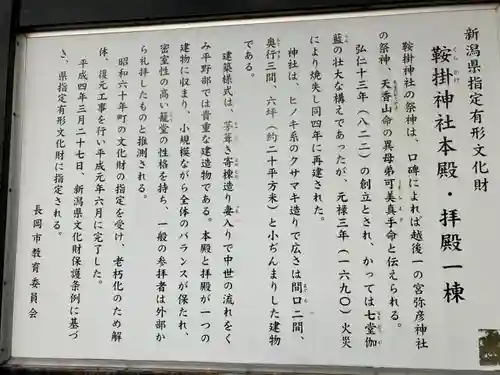 新潟県指定有形文化財
鞍掛神社本殿・拝殿一棟
くらかけ
鞍掛神社の祭神は、口碑によれば越後一の宮弥彦神社
の祭神、天香山命の異母弟可美真手命と伝えられる。
弘仁十三年（八二二）の創立とされ、かつては七堂伽
藍の壮大な構えであったが、元禄三年（一六九〇）火災
により焼失し同四年に再建された。
神社は、ヒノキ系のクサマキ造りで広さは間口二間、
奥行三間、六坪（約二十平方米）と小ぢんまりした建物
である。
建築様式は、茅葺き寄棟造り妻入りで中世の流れをく
み平野部では貴重な建造物である。本殿と拝殿が一つの
建物に収まり、小規模ながら全体のバランスが保たれ、
密室性の高い籠堂の性格を持ち、一般の参拝者は外部か
ら礼拝したものと推測される。
昭和六十年町の文化財の指定を受け、老朽化のため解
体、復元工事を行い平成元年六月に完了した。
平成四年三月二十七日、新潟県文化財保護条例に基づ
き、県指定有形文化財に指定される。
長岡市教育委員会